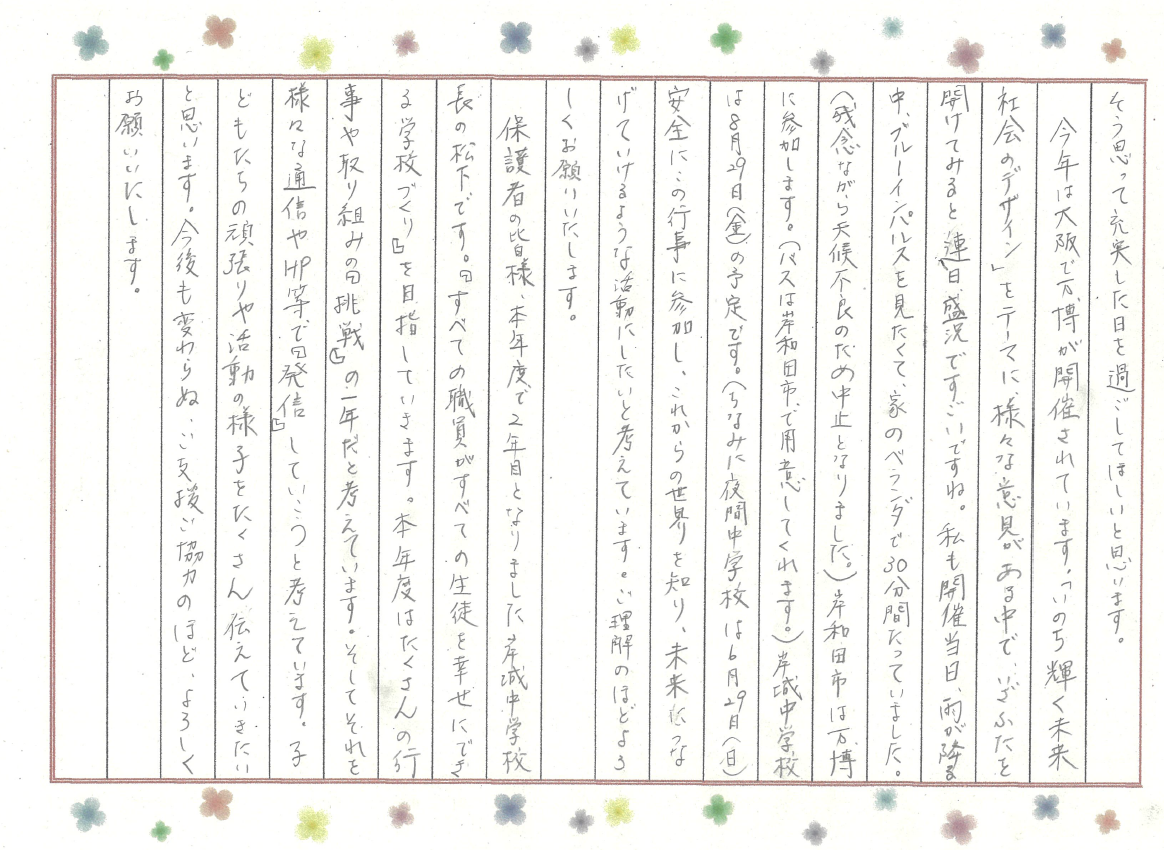 そう思って充実した日を過ごしてほしいと思います。
今年は大阪で万博が開催されています。「いのち輝く未来
社会のデザイン」をテーマに、様々な意見がある中で、いざふたを
開けてみると連日盛況ですごいですね。私も開催当日、雨が降る
中、ブルーインパルスを見たくて、家のベランダで30分間たっていました。
（残念ながら天候不良のため中止となりました。）岸和田市は万博
に参加します。（バスは岸和田市で用意してくれます。）岸城中学校
は8月29日（金）の予定です。（ちなみに夜間中学校は6月29日（日）
安全にこの行事に参加し、これからの世界を知り、未来につな
げていけるような活動にしたいと考えています。ご理解のほどよろ
しくお願いいたします。
保護者の皆様、本年度で2年目となりました岸城中学校
長の松下です。『すべての職員がすべての生徒を幸せにでき
る学校づくり』を目指していきます。本年度はたくさんの行
事や取り組みの『挑戦』の一年だと考えています。そしてそれを
様々な通信やHP等で『発信』していこうと考えています。子
どもたちの頑張りや活動の様子をたくさん伝えていきたい
と思います。今後も変わらぬ、ご支援ご協力のほど、よろしく
お願いいたします。